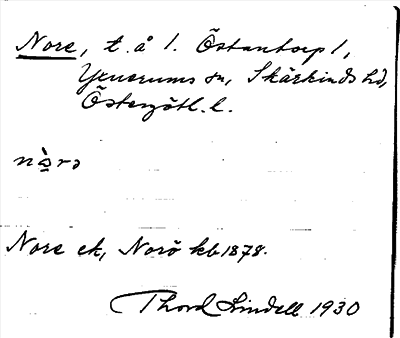 Nore, t. å l. Östantorp l,
Yxnerums sn, Skärkinds hd,
Östergötl. l.
nọ̀rə
Nore ek, Norö kb 1878.
Thord Lindell 1930